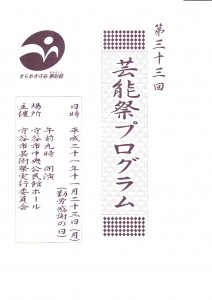 第三十三回
芸能祭プログラム
日時　平成二十一年十一月二十三日(月)
(勤労感謝の日)
午前九時　開演
場所　守谷市中央公民館ホール
主催　守谷市芸術祭実行委員会
きらめき守谷 夢彩都